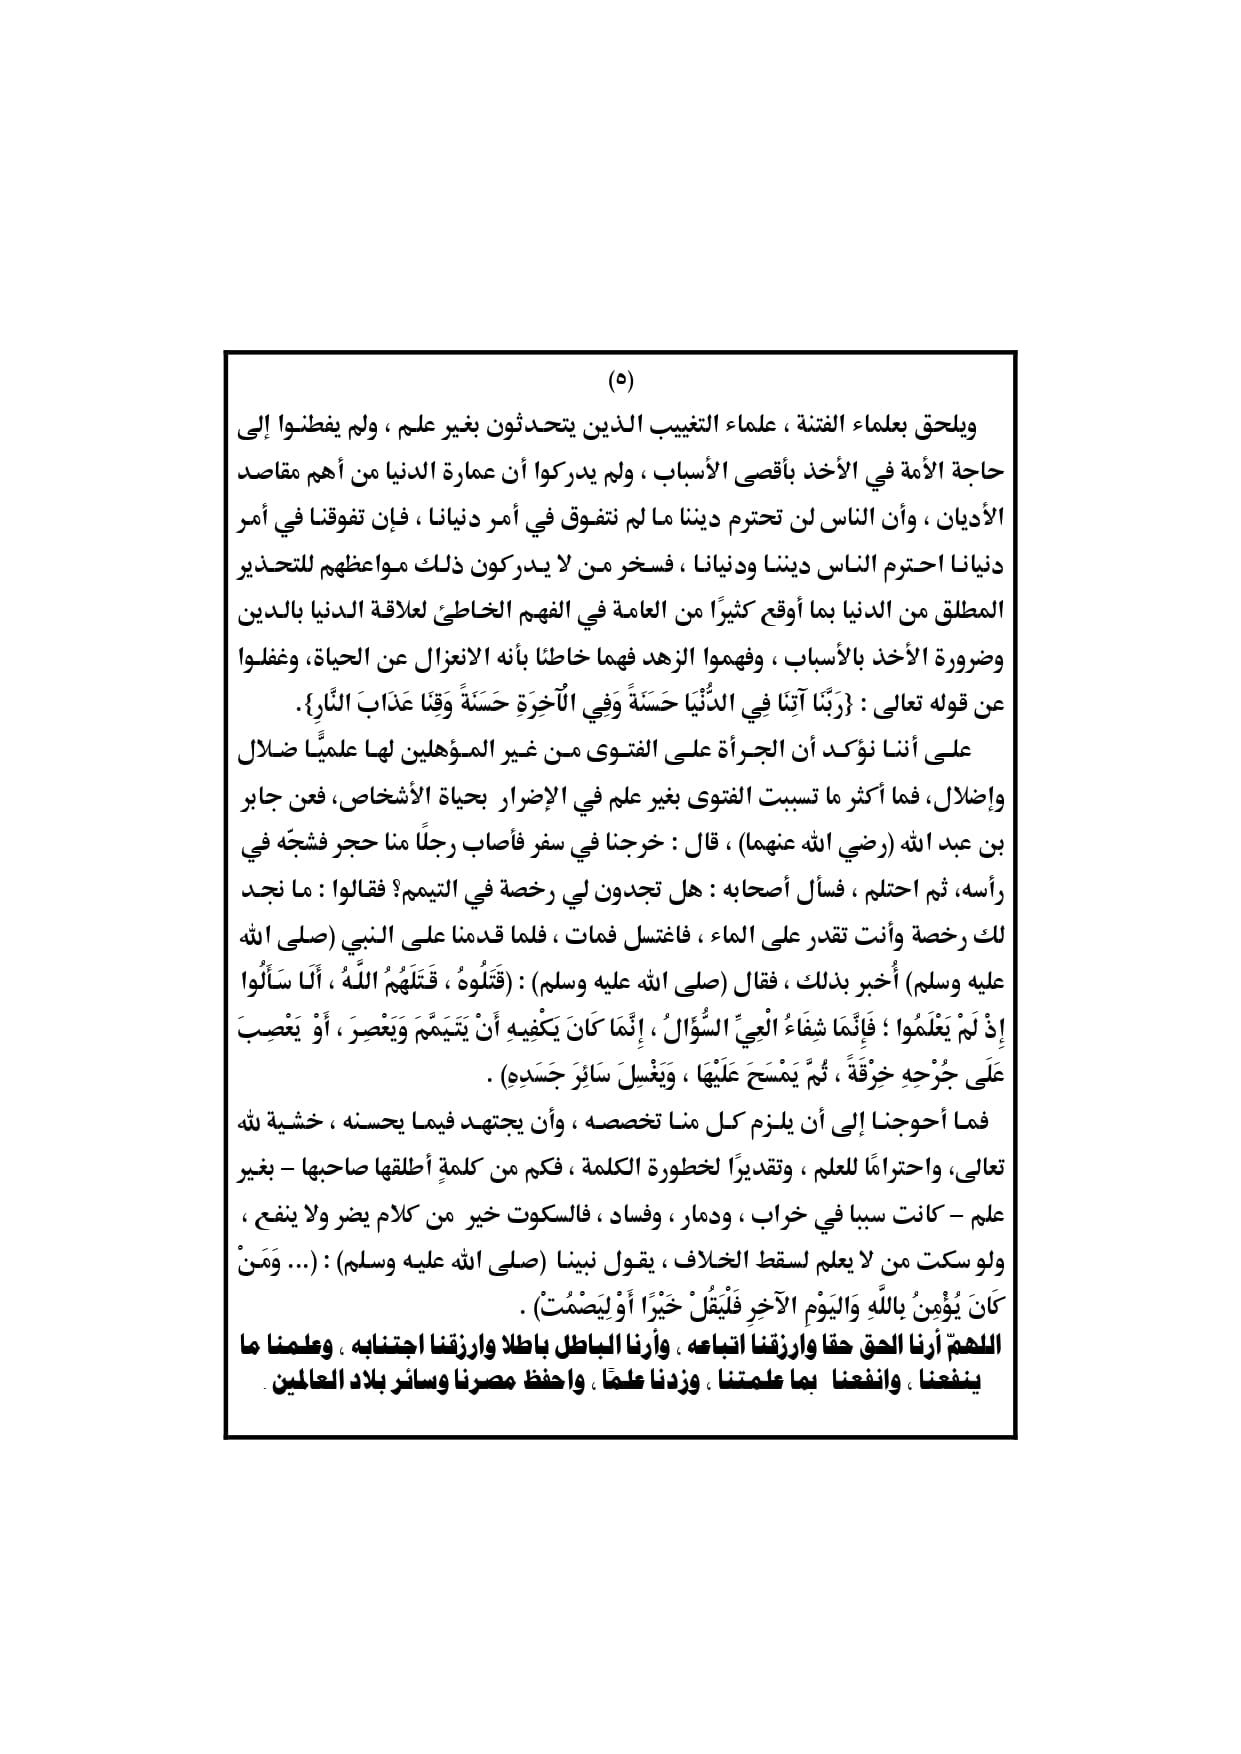 (٥)
ويلحق بعلماء الفتنة ، علماء التغييب الذين يتحدثون بغير علم ، ولم يفطنوا إلى
حاجة الأمة في الأخذ بأقصى الأسباب ، ولم يدركوا أن عمارة الدنيا من أهم مقاصد
الأديان ، وأن الناس لن تحترم ديننا ما لم نتفوق في أمر دنيانا ، فإن تفوقنا في أمر
دنيانا احترم الناس ديننا ودنيانا ، فسخر من لا يدركون ذلك مواعظهم للتحذير
المطلق من الدنيا بما أوقع كثيرًا من العامة في الفهم الخاطئ لعلاقة الدنيا بالدين
وضرورة الأخذ بالأسباب ، وفهموا الزهد فهما خاطئا بأنه الانعزال عن الحياة، وغفلوا
عن قوله تعالى : {رَبَّنَا آتِنَا فِي الدُّنْيَا حَسَنَةً وَفِي الْآخِرَةِ حَسَنَةً وَقِنَا عَذَابَ النَّارِ}.
على أننا نؤكد أن الجرأة على الفتوى من غير المؤهلين لها علميًّا ضلال
وإضلال، فما أكثر ما تسببت الفتوى بغير علم في الإضرار بحياة الأشخاص، فعن جابر
بن عبد الله (رضي الله عنهما) ، قال : خرجنا في سفر فأصاب رجلًا منا حجر فشجّه في
رأسه، ثم احتلم ، فسأل أصحابه : هل تجدون لي رخصة في التيمم؟ فقالوا : ما نجد
لك رخصة وأنت تقدر على الماء ، فاغتسل فمات ، فلما قدمنا على النبي (صلى الله
عليه وسلم) أُخبر بذلك ، فقال (صلى الله عليه وسلم) : (قَتَلُوهُ ، قَتَلَهُمُ اللَّهُ ، أَلَا سَأَلُوا
إِذْ لَمْ يَعْلَمُوا ؛ فَإِنَّمَا شِفَاءُ الْعِيِّ السُّؤَالُ ، إِنَّمَا كَانَ يَكْفِيهِ أَنْ يَتَيَمَّمَ وَيَعْصِرَ ، أَوْ يَعْصِبَ
عَلَى جُرْحِهِ خِرْقَةً ، ثُمَّ يَمْسَحَ عَلَيْهَا ، وَيَغْسِلَ سَائِرَ جَسَدِهِ) .
فما أحوجنا إلى أن يلزم كل منا تخصصه ، وأن يجتهد فيما يحسنه ، خشية لله
تعالى، واحترامًا للعلم ، وتقديرًا لخطورة الكلمة ، فكم من كلمةٍ أطلقها صاحبها – بغير
علم – كانت سببا في خراب ، ودمار ، وفساد ، فالسكوت خير من كلام يضر ولا ينفع ،
ولو سكت من لا يعلم لسقط الخلاف ، يقول نبينا (صلى الله عليه وسلم) : (... وَمَنْ
كَانَ يُؤْمِنُ بِاللَّهِ وَاليَوْمِ الآخِرِ فَلْيَقُلْ خَيْرًا أَوْ لِيَصْمُتْ) .
اللهمّ أرنا الحق حقا وارزقنا اتباعه ، وأرنا الباطل باطلا وارزقنا اجتنابه ، وعلمنا ما
ينفعنا ، وانفعنا بما علمتنا ، وزدنا علمًا ، واحفظ مصرنا وسائر بلاد العالمين .